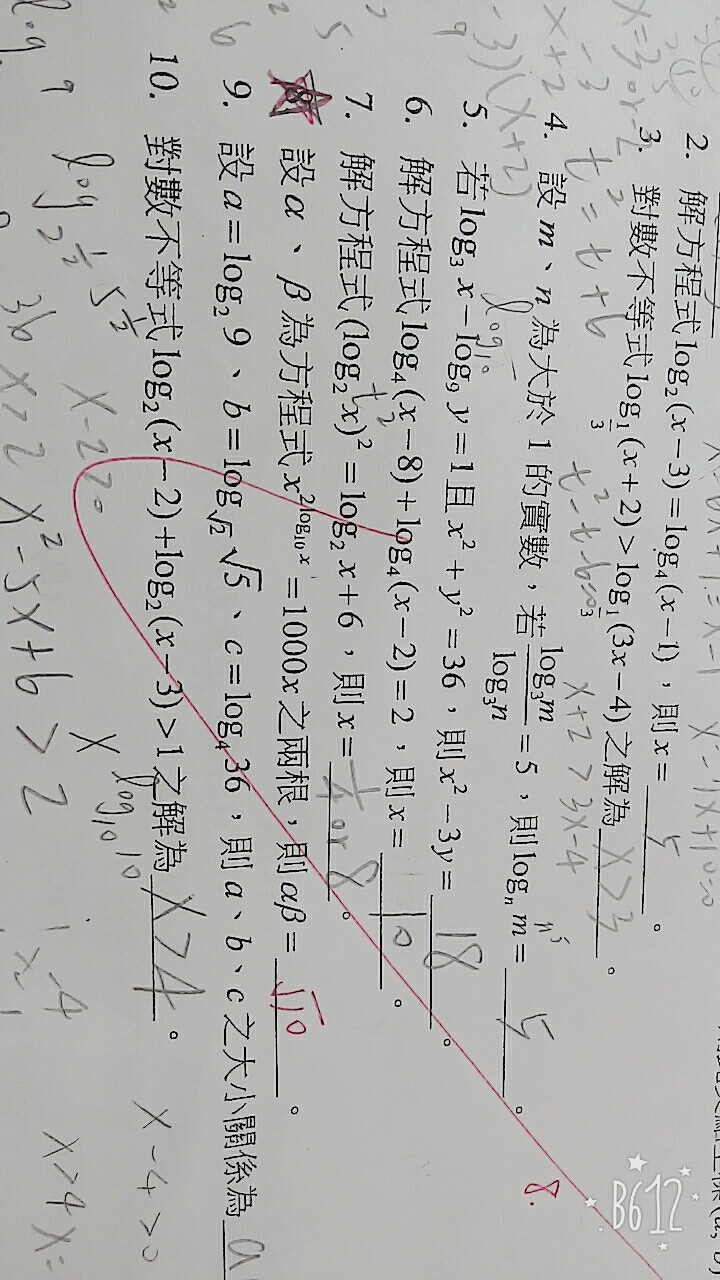 2. 解方程式 log₂(x−3)=log₄(x−1),則x= 5 。
3. 對數不等式 log_{1/3}(x+2)>log_{1/3}(3x−4)之解為 x>3 。
4. 設m、n為大於1的實數,若 log₃m/log₃n =5,則 logₙm= 5 。
5. 若log₃x−log₉y=1且x²+y²=36,則x²−3y= 18 。
6. 解方程式log₄(x−8)+log₄(x−2)=2,則x= 10 。
7. 解方程式(log₂x)²=log₂x+6,則x= 1/4 or 8 。
8. 設α、β為方程式x^{2log₁₀x}=1000x之兩根,則αβ= √10 。
9. 設a=log₂9、b=log_{√2}√5、c=log₄36,則a、b、c之大小關係為 a
10. 對數不等式log₂(x−2)+log₂(x−3)>1之解為 x>4 。
x=3 or −2
t²=t+6
t²−t−6=0
x+2>3x−4
n⁵
8.
log₁₀10
x−2>0
x−4>0
x>2 x²−5x+6>2
x>4
B612